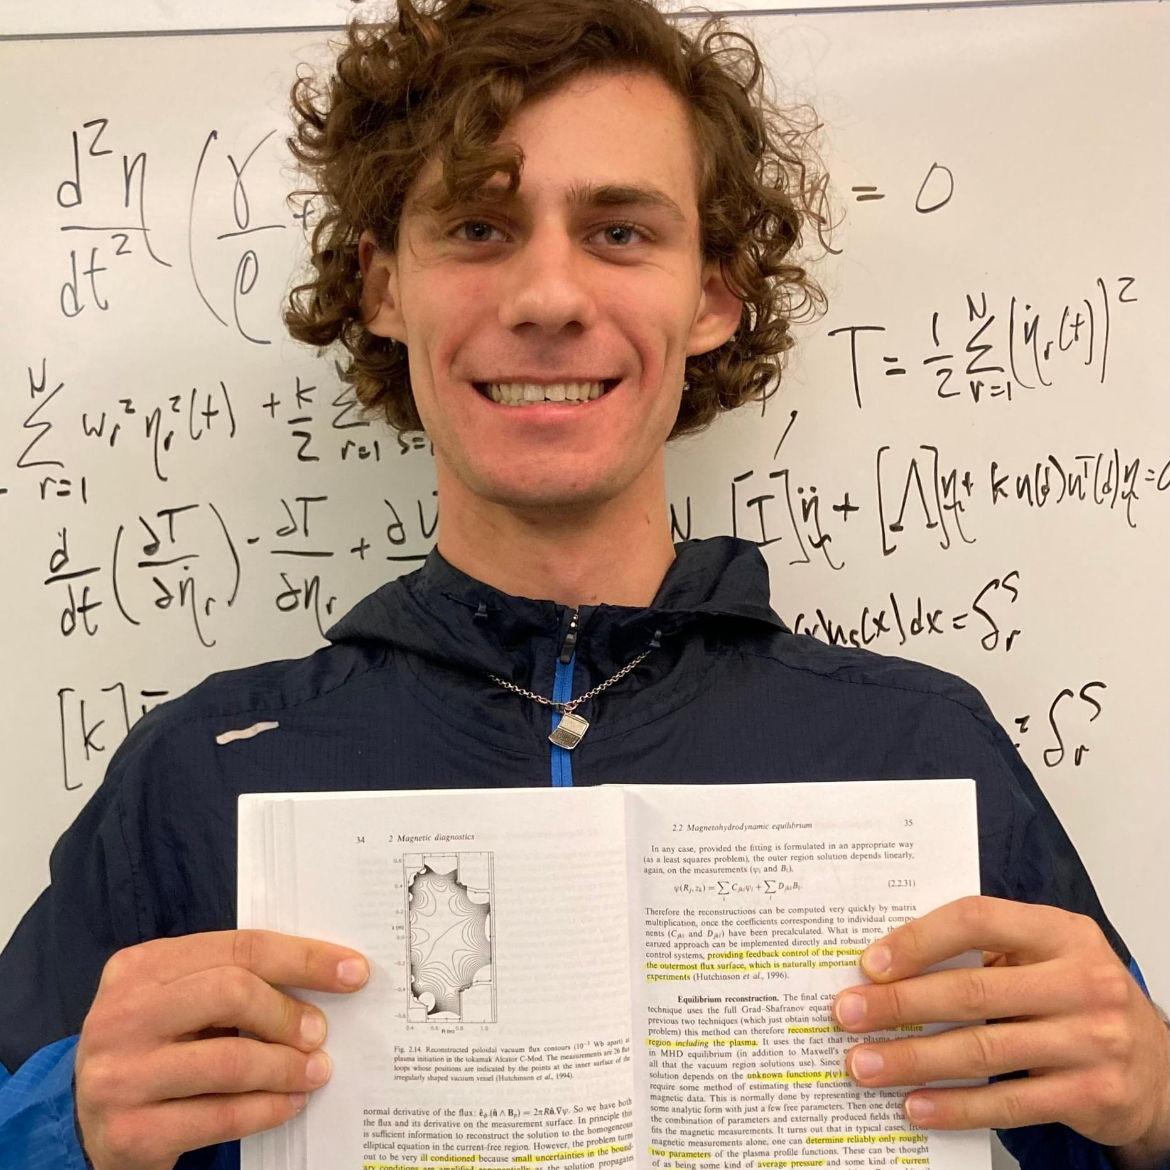 d²η/dt² (γ/ρ +
η = 0
T = 1/2 Σ_{r=1}^{N} (η̇_r(t))²
Σ_{r=1}^{N} w_r² η_r²(t) + k/2 Σ_{r=1} s=1
[I]η̈ + [Λ]η + k u(d)u^T(d)η = 0
d/dt (∂T/∂η̇_r) - ∂T/∂η_r + ∂U
(x)dx = δ_r^s
[k]
² δ_r^s
34 2 Magnetic diagnostics
0.6
0.4
0.2
0.0
-0.2
-0.4
-0.6
0.4 0.6 0.8 1.0
R (m)
Fig. 2.14. Reconstructed poloidal vacuum flux contours (10⁻³ Wb apart) at
plasma initiation in the tokamak Alcator C-Mod. The measurements are 26 flux
loops whose positions are indicated by the points at the inner surface of the
irregularly shaped vacuum vessel (Hutchinson et al., 1994).
normal derivative of the flux: ê_φ.(n̂ ∧ B_p) = 2πRn̂.∇ψ. So we have both
the flux and its derivative on the measurement surface. In principle this
is sufficient information to reconstruct the solution to the homogeneous
elliptical equation in the current-free region. However, the problem turns
out to be very ill conditioned because small uncertainties in the bound-
ary conditions are amplified exponentially as the solution propagates
2.2 Magnetohydrodynamic equilibrium 35
In any case, provided the fitting is formulated in an appropriate way
(as a least squares problem), the outer region solution depends linearly,
again, on the measurements (ψ_i and B_i),
ψ(R_j, z_k) = Σ_i C_jki ψ_i + Σ_i D_jki B_i. (2.2.31)
Therefore the reconstructions can be computed very quickly by matrix
multiplication, once the coefficients corresponding to individual compo-
nents (C_jki and D_jki) have been precalculated. What is more,
earized approach can be implemented directly and robustly
control systems, providing feedback control of the position
the outermost flux surface, which is naturally important
experiments (Hutchinson et al., 1996).
Equilibrium reconstruction. The final
technique uses the full Grad–Shafranov
previous two techniques (which just obtain
problem) this method can therefore reconstruct entire
region including the plasma. It uses the fact that the plasma
in MHD equilibrium (in addition to Maxwell's
all that the vacuum region solutions use). Since
solution depends on the unknown functions p(ψ)
require some method of estimating these functions
magnetic data. This is normally done by representing the
some analytic form with just a few free parameters. Then one
the combination of parameters and externally produced fields
fits the magnetic measurements. It turns out that in typical cases, from
magnetic measurements alone, one can determine reliably only roughly
two parameters of the plasma profile functions. These can be thought
of as being some kind of average pressure and some kind of current